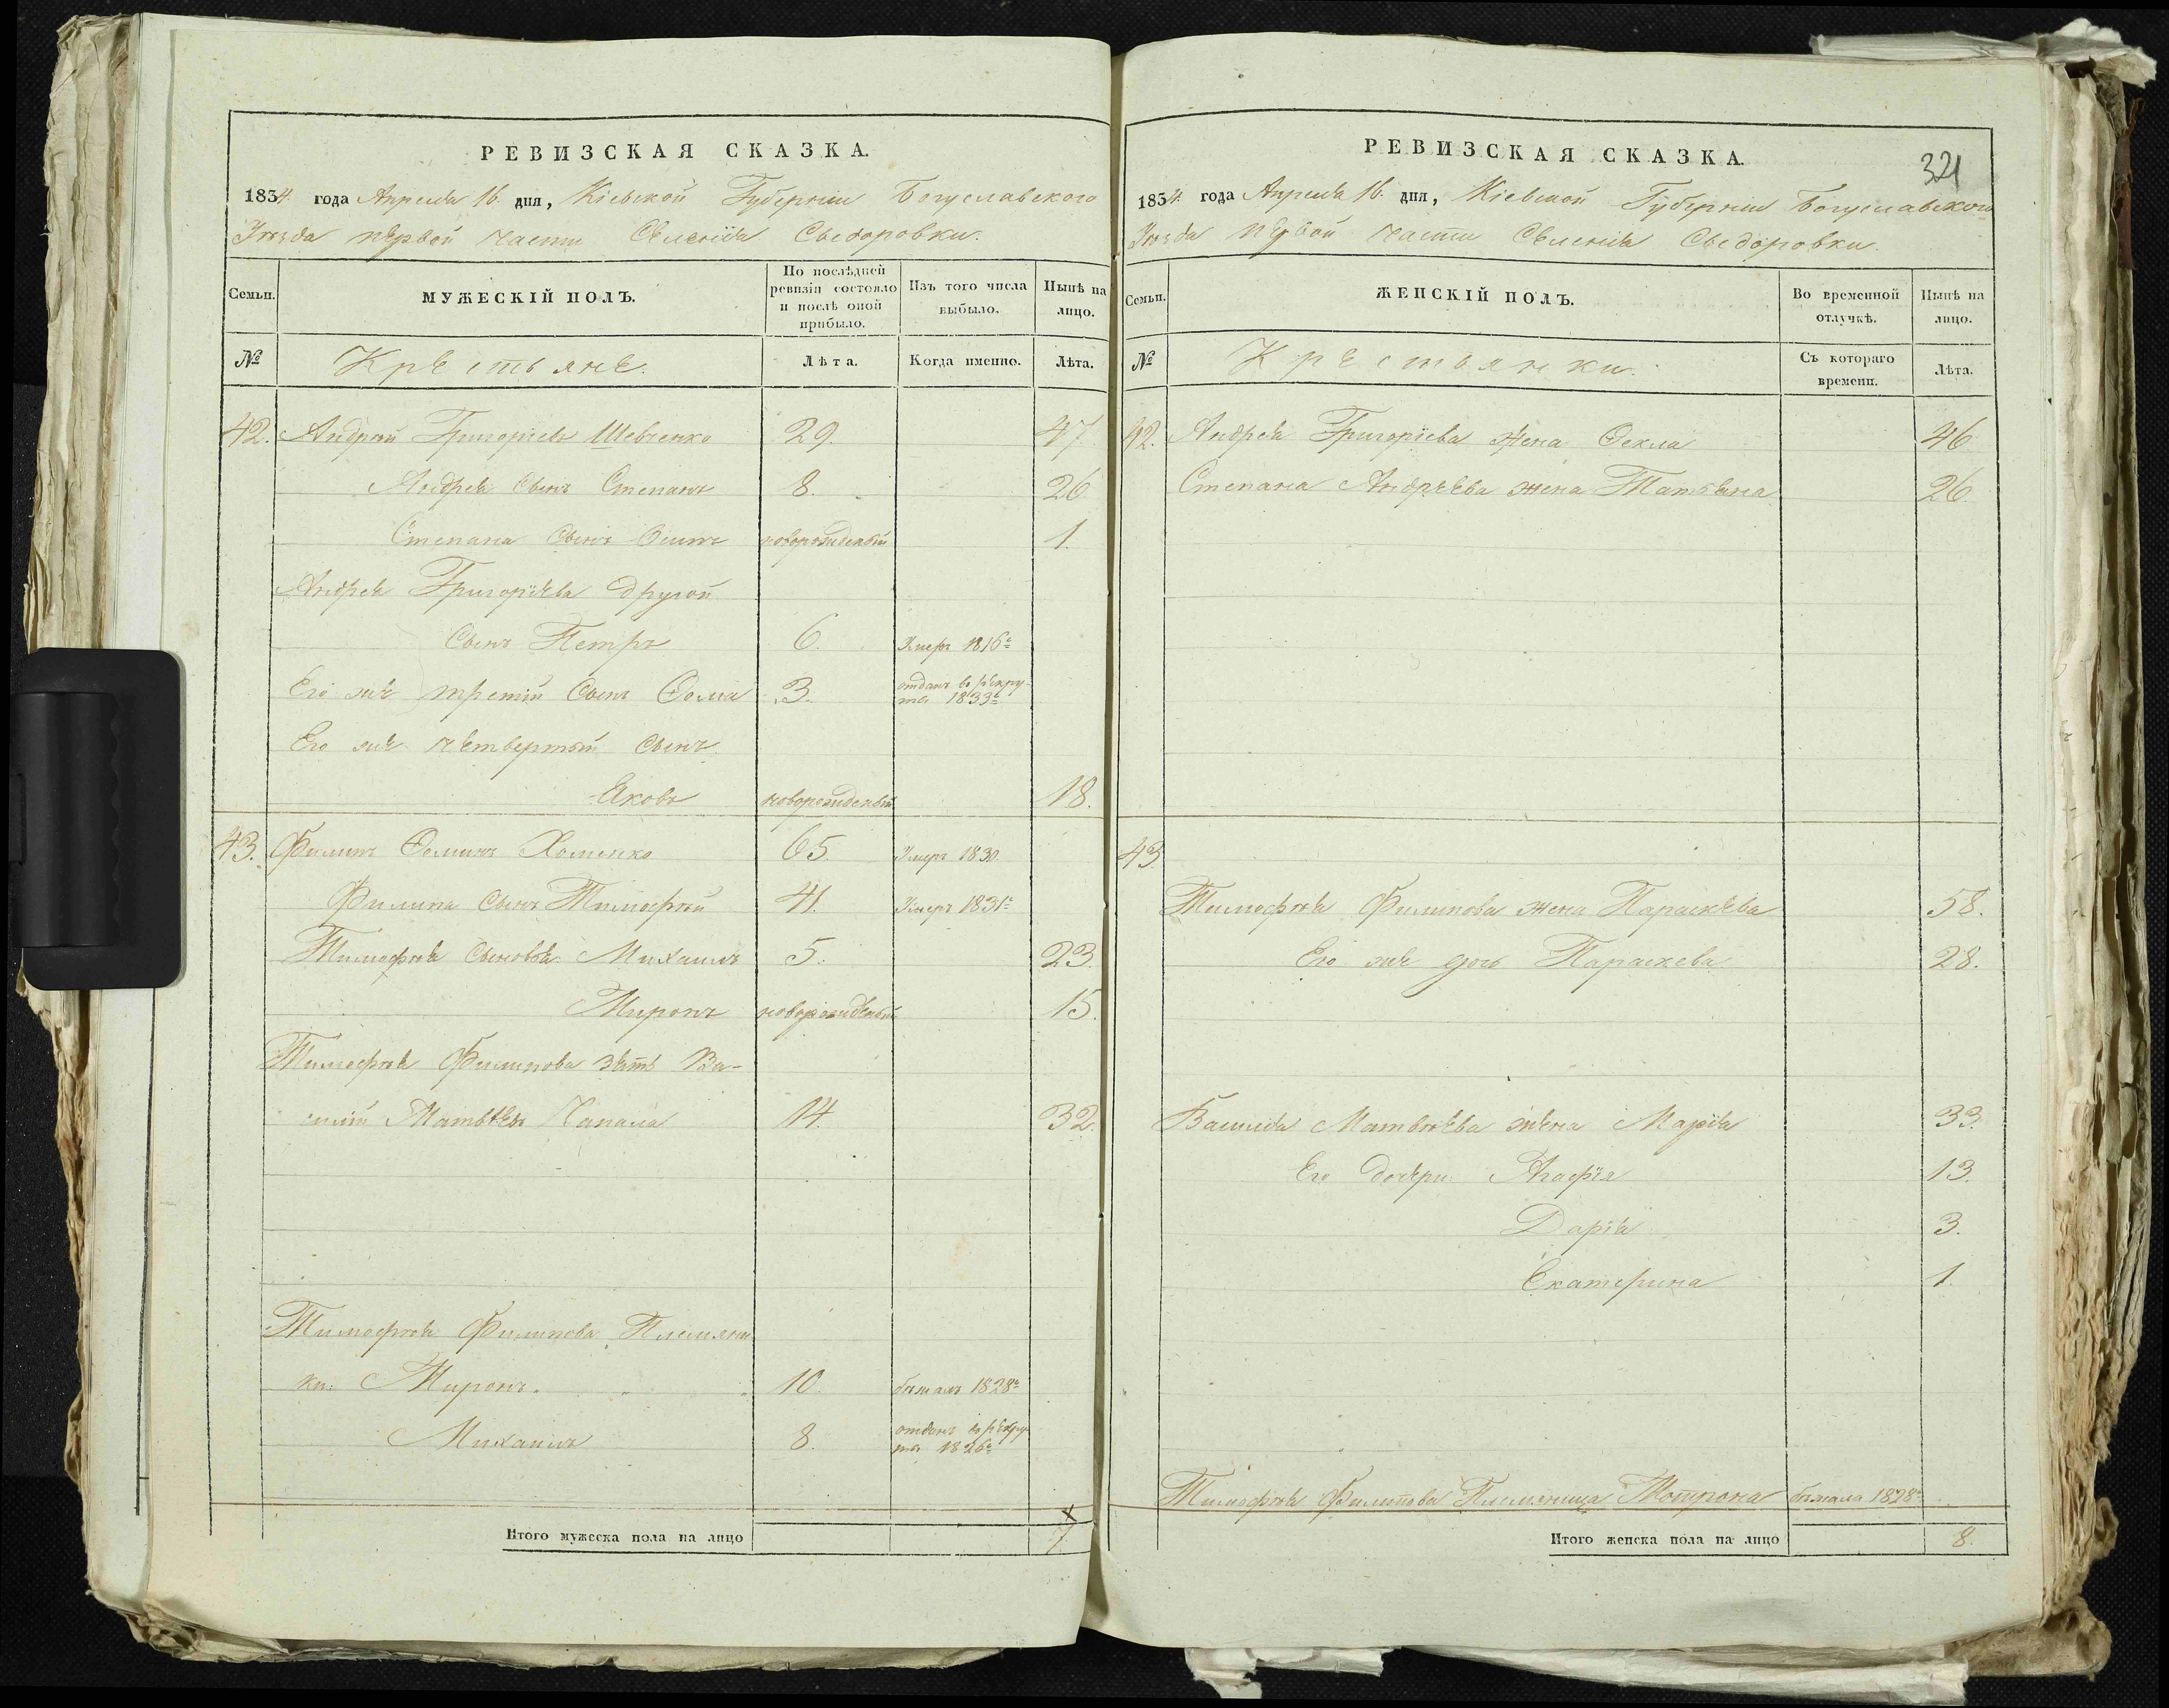 РЕВИЗСКАЯ СКАЗКА.
1834 года Апреля 16. дня, Кіевской Губерніи Богуславского
Уѣзда первой части Селенія Сыедоровки.
Семьи.
МУЖЕСКІЙ ПОЛЪ.
По послѣдней ревизіи состояло и послѣ оной прибыло.
Изъ того числа выбыло.
Нынѣ на лицо.
№
Крестьяне.
Лѣта.
Когда именно.
Лѣта.
42. Андрѣй Григоріевъ Шевченко 29. 47.
Андрея Сынъ Степанъ 8. 26.
Степана Сынъ Осипъ новорожденый 1.
Андрея Григоріева другой
Сынъ Петръ 6. Умеръ 1816г
Его же третій Сынъ Ѳома 3. отданъ въ рекру-
ты 1833г
Его же четвертый Сынъ
Яковъ новорожденый 18.
43. Филипъ Ѳоминъ Хоменко 65. Умеръ 1830.
Филипа Сынъ Тимофѣй 41. Умеръ 1831г
Тимофѣя Сыновья Михаилъ 5. 23.
Миронъ новорожденый 15.
Тимофѣя Филипова зять Ва-
силій Матвѣевъ Чапала 14. 32.
Тимофѣя Филипова Племяни
ки: Миронъ 10. бѣжалъ 1828г
Михаилъ 8. отданъ въ рекру
ты 1826г
Итого мужеска пола на лицо 7.
РЕВИЗСКАЯ СКАЗКА.
321
1834. года Апреля 16. дня, Кіевской Губерніи Богуславского
Уѣзда первой части Селенія Сыедоровки.
Семьи.
ЖЕНСКІЙ ПОЛЪ.
Во временной отлучкѣ.
Нынѣ на лицо.
№
Крестьянки.
Съ котораго времени.
Лѣта.
42. Андрея Григоріева жена Ѳекла 46
Степана Андреева жена Татьяна 26.
43
Тимофѣя Филипова жена Параскева 58.
Его же дочь Параскева 28.
Василія Матвѣева жена Марія 33.
Его дочери: Агафія 13.
Дарія 3.
Екатерина 1.
Тимофѣя Филипова Племяница Мотрона бѣжала 1828г
Итого женска пола на лицо 8.